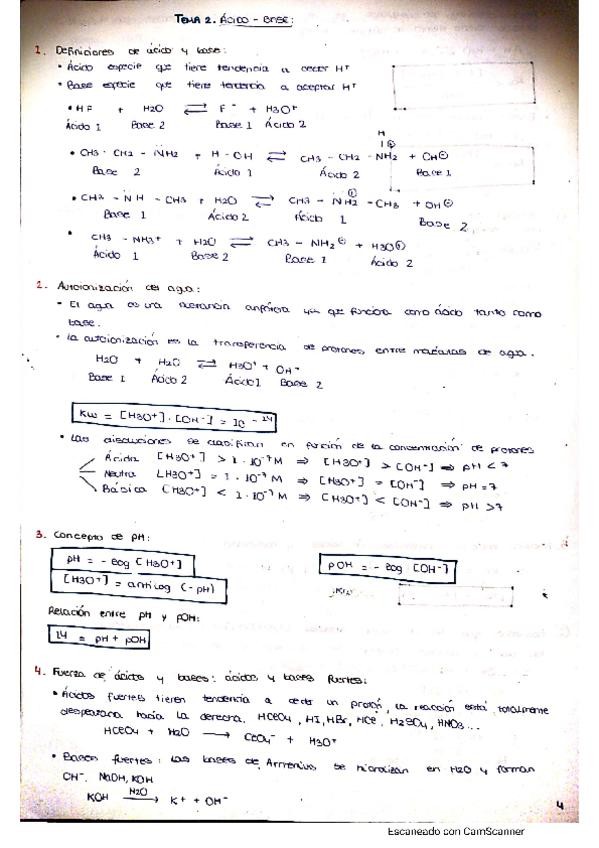 TEMA 2. ÁCIDO - BASE:
1. Definiciones de ácido y base:
• Ácido especie que tiene tendencia a ceder H+
• Base especie que tiene tendencia a aceptar H+
• HF + H2O ⇌ F⁻ + H3O+
Ácido 1 Base 2 Base 1 Ácido 2
H
• CH3 - CH2 - NH2 + H - OH ⇌ CH3 - CH2 - NH2 ⊕ + OH⊖
Base 2 Ácido 1 Ácido 2 Base 1
• CH3 - NH - CH3 + H2O ⇌ CH3 - NH2 ⊕ - CH3 + OH⊖
Base 1 Ácido 2 Ácido 1 Base 2
• CH3 - NH3+ + H2O ⇌ CH3 - NH2 + H3O⊕
Ácido 1 Base 2 Base 1 Ácido 2
2. Autoionización del agua:
• El agua es una sustancia anfótera ya que funciona como ácido tanto como
base.
• La autoionización es la transferencia de protones entre moléculas de agua.
H2O + H2O ⇌ H3O+ + OH-
Base 1 Ácido 2 Ácido 1 Base 2
Kw = [H3O+] · [OH-] = 10 -14
• Las disoluciones se clasifican en función de la concentración de protones
Ácida [H3O+] > 1 · 10-7 M ⇒ [H3O+] > [OH-] ⇒ pH < 7
Neutra [H3O+] = 1 · 10-7 M ⇒ [H3O+] = [OH-] ⇒ pH = 7
Básica [H3O+] < 1 · 10-7 M ⇒ [H3O+] < [OH-] ⇒ pH > 7
3. Concepto de pH:
pH = - log [H3O+] pOH = - log [OH-]
[H3O+] = antilog (- pH)
Relación entre pH y pOH:
14 = pH + pOH
4. Fuerza de ácidos y bases: ácidos y bases fuertes:
• Ácidos fuertes tienen tendencia a ceder un protón, la reacción está totalmente
desplazada hacia la derecha. HClO4, HI, HBr, HCl, H2SO4, HNO3...
HClO4 + H2O → ClO4- + H3O+
• Bases fuertes: las bases de Arrhenius se hidrolizan en H2O y forman
OH-. NaOH, KOH
KOH H2O → K+ + OH-
4
Escaneado con CamScanner